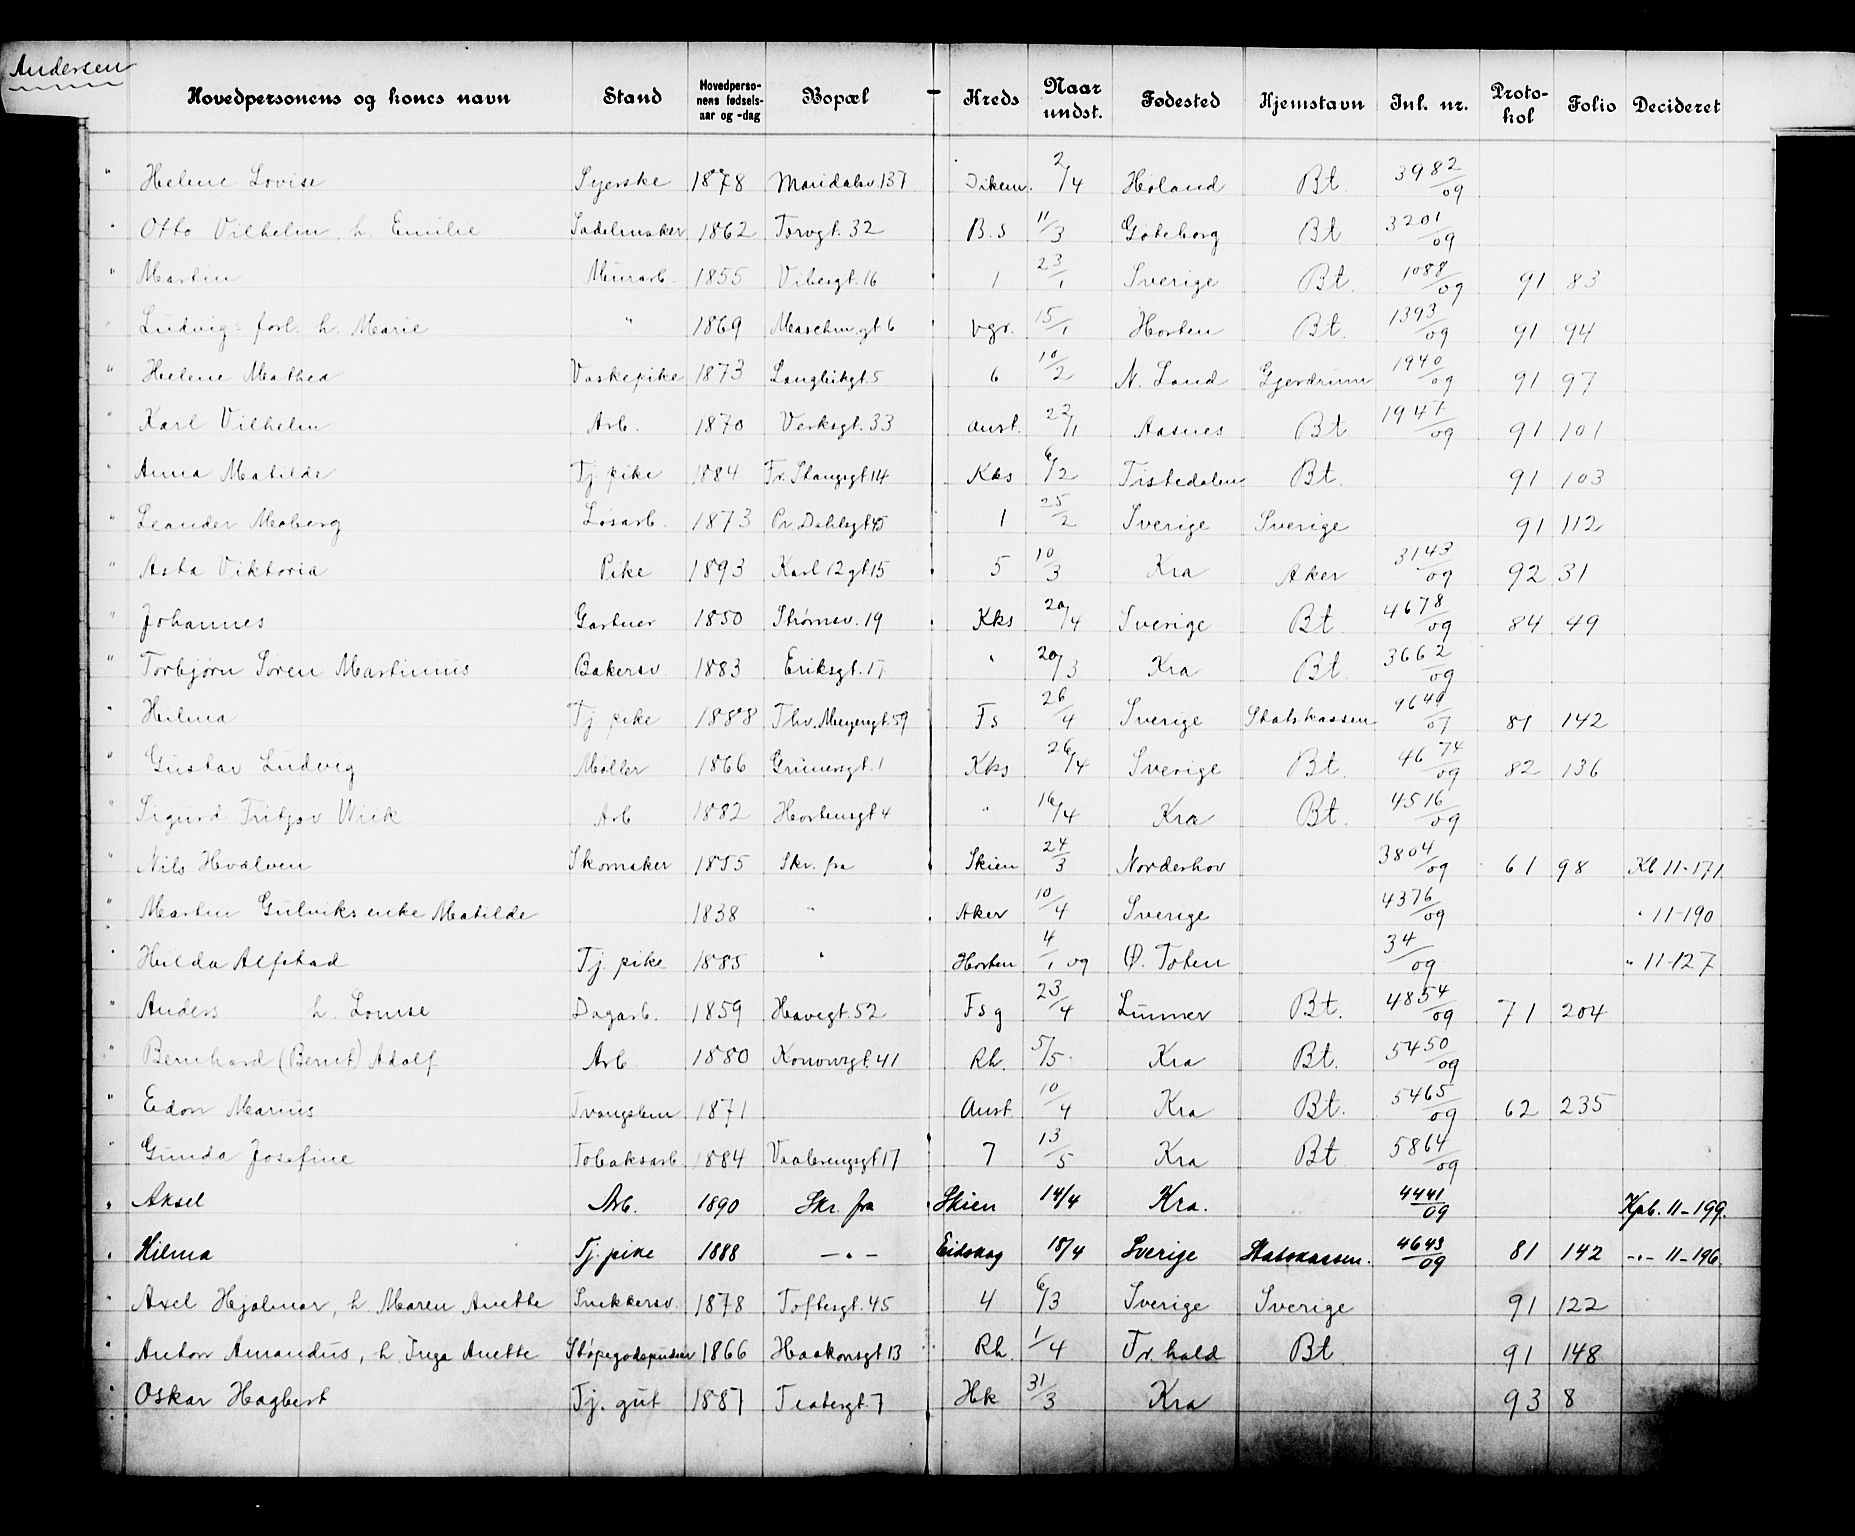 Andersen
Hovedpersonens og hones navn Stand Hovedperso-nens fødsels-aar og -dag Bopæl Kreds Naar undst. Fødested Hjemstavn Inl. nr. Proto-kol Folio Decideret
" Helene Lovise Syerske 1878 Maridalsv. 137 Dikem. 2/4 Høland Bt. 3982/09
" Otto Vilhelm, h. Emilie Sadelmaker 1862 Torvgt. 32 B.s 11/3 Gøteborg Bt 3201/09
" Martin Murarb. 1855 Vibesgt. 16 1 23/1 Sverige Bt. 1088/09 91 83
" Ludvig forl. h. Marie " 1869 gt 6 Vgr. 15/1 Horten Bt. 1393/09 91 94
" Helene Mathea Vaskepike 1873 Langleikgt. 5 6 10/2 N. Land Gjerdrum 1940/09 91 97
" Karl Vilhelm Arb. 1870 Verksgt. 33 anst. 22/1 Aasnes Bt 1947/09 91 101
" Anna Matilde Tj. pike 1884 Fr. Stangsgt 14 Kks 6/2 Tistedalen Bt. 91 103
" Leander Moberg Løsarb. 1873 Pr. Dahlsgt 45 1 25/2 Sverige Sverige 91 112
" Asta Viktoria Pike 1893 Karl 12 gt 15 5 10/3 Kra Aker 3143/09 92 31
" Johannes Gartner 1850 Strømsv. 19 Kks 20/4 Sverige Bt. 4678/09 84 49
" Torbjørn Søren Martinius Bakersv 1883 Eriksgt. 17 " 20/3 Kra Bt. 3662/09
" Hilma Tj pike 1888 Thv. Meyersgt. 59 Fs 26/4 Sverige Statskassen 81 142
" Gustav Ludvig Møller 1866 Grünersgt. 1 Kks 26/4 Sverige Bt. 4674/09 82 136
" Sigurd Fritjov Wiik Arb 1882 Hortensgt 4 " 16/4 Kra Bt. 4516/09
" Nils Hvalven Skomaker 1855 Skr. fra Skien 24/3 Norderhov 3804/09 61 98 Kb 11-171
" Martin Gulviks enke Matilde 1838 " Aker 10/4 Sverige 4376/09 " 11-190
" Hilda Alfstad Tj. pike 1885 " Horten 4/1 09 Ø. Toten 34/09 " 11-127
" Anders h. Louise Dagarb. 1859 Havegt. 52 Fsg 23/4 Lunner Bt. 4854/09 71 204
" Bernhard (Bernt) Adolf Arb 1880 Konowsgt. 41 Rh. 5/5 Kra Bt. 5450/09
" Edon Marius Tvangslem 1871 Anst. 10/4 Kra Bt. 5465/09 62 235
" Gunda Josefine Tobaksarb. 1884 Vaalerengsgt 17 7 13/5 Kra Bt 5864/09
" Aksel Arb. 1890 Skr. fra Skien 14/4 Kra. 4441/09 Kpb. 11-199.
" Hilma Tj. pike 1888 —"— Eidskog 18/4 Sverige Statskassen. 4643/09 81 142 -"- 11-196.
" Axel Hjalmar, h Maren Anette Snekkersv. 1878 Toftesgt. 45 4 6/3 Sverige Sverige 91 122
" Anton Amandus, h. Inga Anette Støpegodspudser 1866 Haakonsgt 13 Rh. 1/4 Fr. hald Bt 91 148
" Oskar Hagbert Tj. gut 1887 Teatergt. 7 Hk 31/3 Kra 93 8